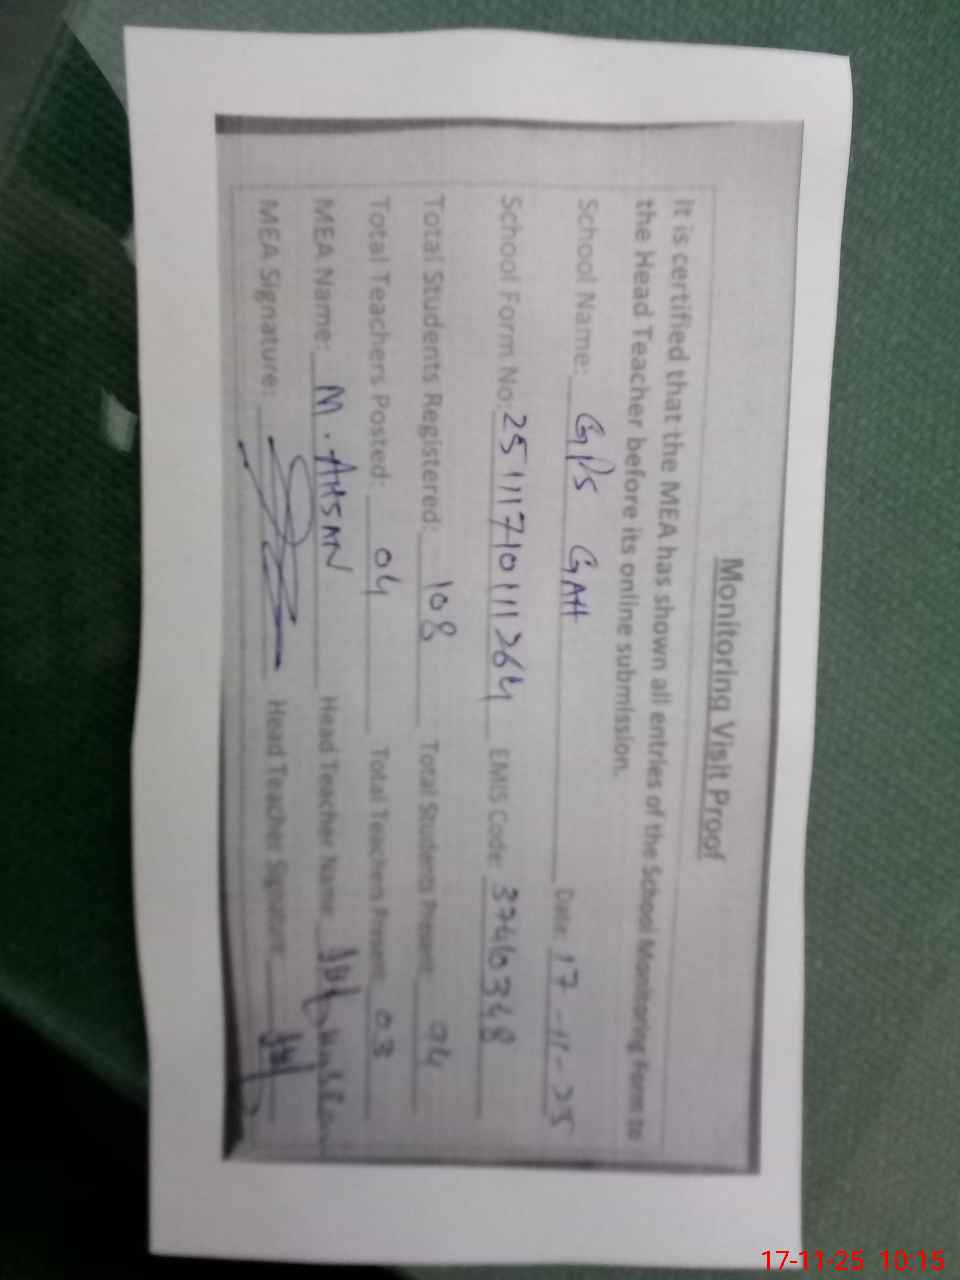 Monitoring Visit Proof
It is certified that the MEA has shown all entries of the School Monitoring Form to
the Head Teacher before its online submission.
School Name: GPS GAH Date: 17-11-25
School Form No: 25111710111264 EMIS Code: 37410348
Total Students Registered: 108 Total Students Present: 94
Total Teachers Posted: 04 Total Teachers Present: 03
MEA Name: M. AHSAN Head Teacher Name:
MEA Signature: Head Teacher Signature:
17-11-25 10:15